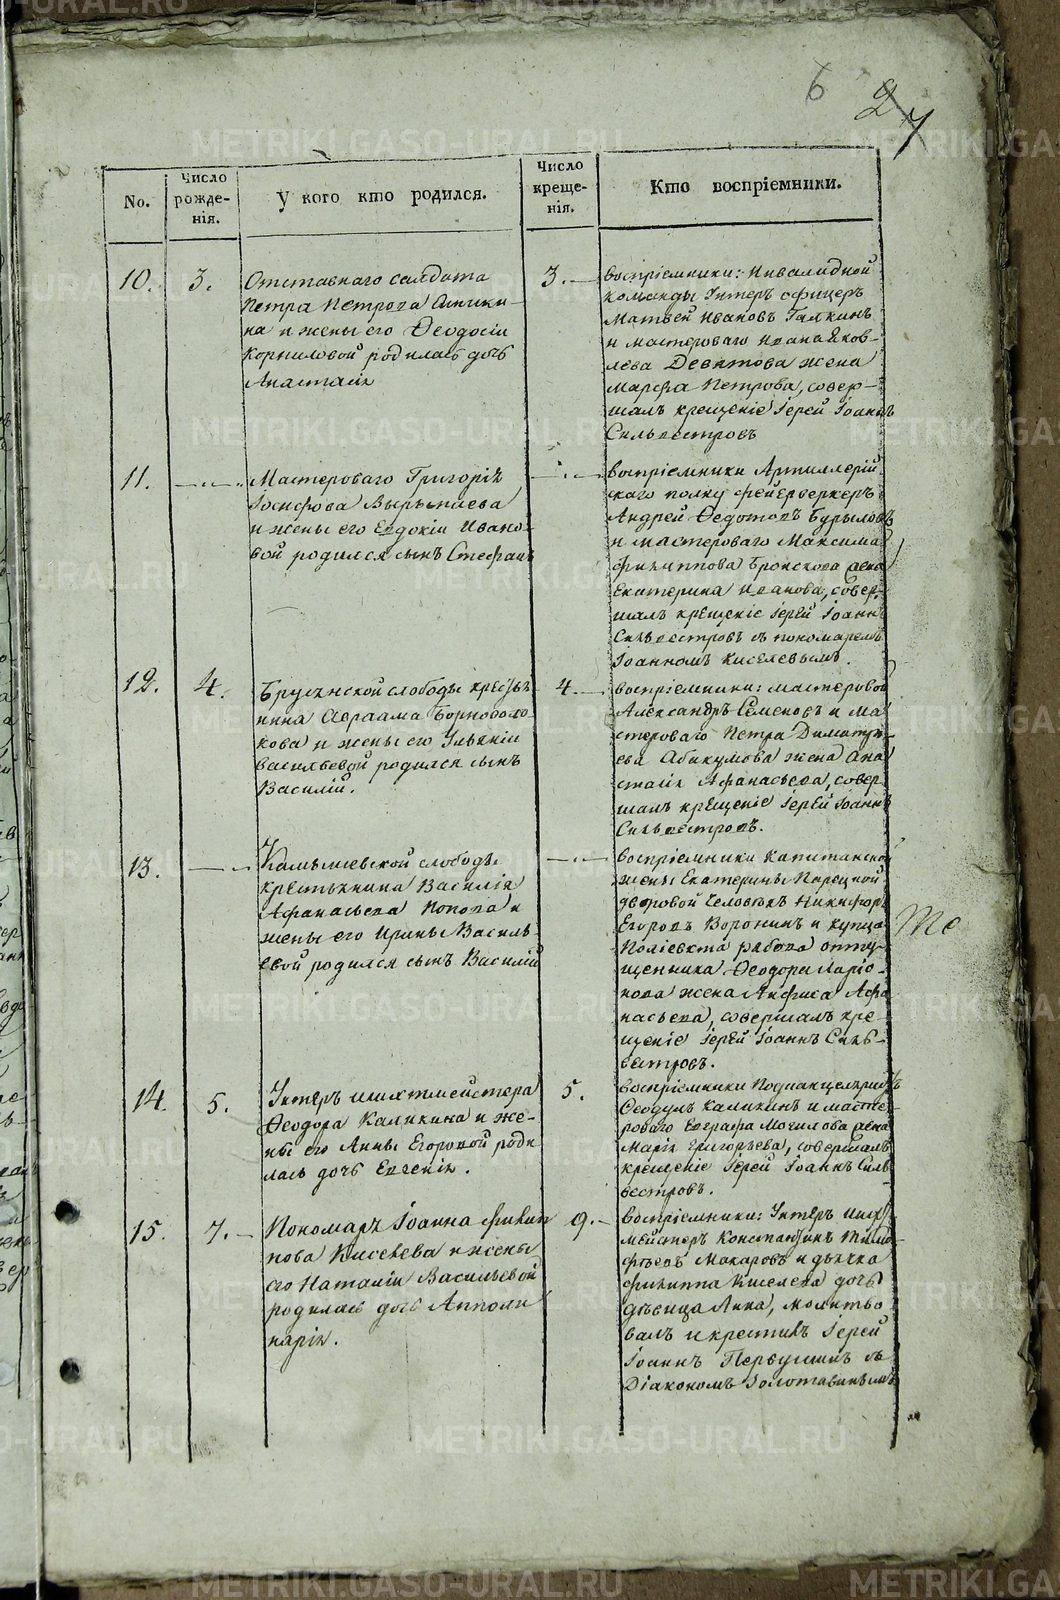 6 2 7
No.
Число рожде-
нія.
У кого кто родился.
Число креще-
нія.
Кто воспріемники.
10. 3.
Отставнаго солдата
Петра Петрова
на и жены его Ѳеодосіи
Корниловой родилась дочь
Анастасія
3.
воспріемники: Инвалидной
команды Унтеръ офицеръ
Матвей Ивановъ Галкинъ
и мастероваго Ивана Яков-
лева Девятова жена
Марфа Петрова, совер-
шалъ крещеніе Іерей Іоаннъ
Сильвестровъ
11.
Мастероваго Григорія
Іосифова
и жены его Евдокіи Ивано-
вой родился сынъ Стефанъ
воспріемники Артиллерій-
скаго полку фейерверкеръ
Андрей Ѳедотовъ Бурыловъ
и мастероваго Максима
Филиппова жена
Екатерина Иванова, совер-
шалъ крещеніе Іерей Іоаннъ
Сильвестровъ съ пономаремъ
Іоанномъ Киселевымъ.
12. 4.
Брусянской слободы крестья-
нина Авраама Борноволо-
кова и жены его Уліяніи
Васильевой родился сынъ
Василій.
4.
воспріемники: мастеровой
Александръ Семеновъ и ма-
стероваго Петра Димитрі-
ева Абакумова жена Ана-
стасія Афанасьева, совер-
шалъ крещеніе Іерей Іоаннъ
Сильвестровъ.
13.
Камышевской слободы
крестьянина Василія
Афанасьева Попова и
жены его Ирины Василь-
евой родился сынъ Василій
воспріемники Капитанской
жены Екатерины
дворовой человекъ Никифоръ
Егоровъ Воронинъ и купца
Поліевкта отпу-
щенника Ѳеодора Ларіо-
нова жена Анфиса Афа-
насьева, совершалъ кре-
щеніе Іерей Іоаннъ Силь-
вестровъ.
14. 5.
Унтеръ шихтмейстера
Ѳеодора Каликина и же-
ны его Анны Егоровой роди-
лась дочь Евгенія.
5.
воспріемники Подканцеляристъ
Ѳеодулъ Каликинъ и масте-
роваго Евграфа Могилова жена
Марія Григорьева, совершалъ
крещеніе Іерей Іоаннъ Силь-
вестровъ.
15. 7.
Пономаря Іоанна Филип-
пова Киселева и жены
его Наталіи Васильевой
родилась дочь Апполи-
нарія.
9.
воспріемники: Унтеръ шихт-
мейстеръ Константинъ Тимо-
феевъ Макаровъ и дьячка
Филиппа Киселева дочь
девица Анна, молитво-
валъ и крестилъ Іерей
Іоаннъ Первушинъ съ
Діакономъ Золотавинымъ
METRIKI.GASO-URAL.RU